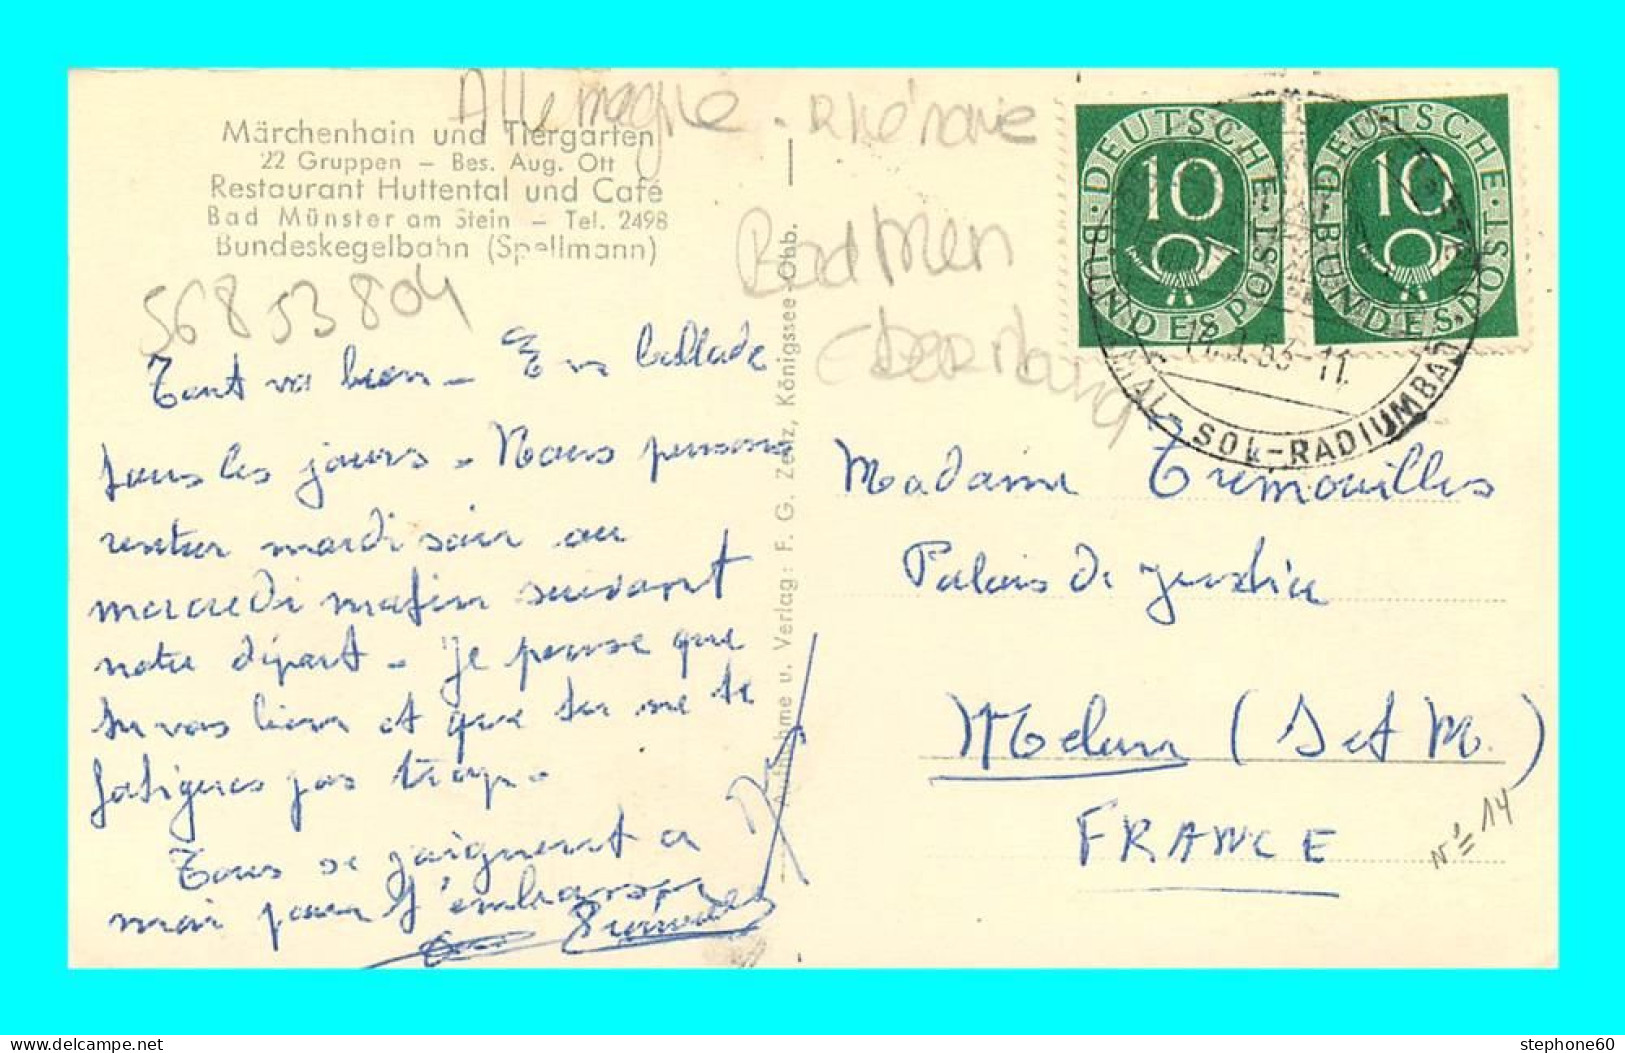 Allemagne - Rhénanie
Märchenhain und Tiergarten
22 Gruppen – Bes. Aug. Ott
Restaurant Huttental und Café
Bad Münster am Stein – Tel. 2498
Bundeskegelbahn (Spellmann)
56853804
Bad Mun
Ebernburg
DEUTSCHE BUNDESPOST 10
DEUTSCHE BUNDESPOST 10
53-11
SOL-RADIUMBAD
Tout va bien - En ballade
tous les jours - Nous pensons
rentrer mardi soir ou
mercredi matin suivant
notre départ - Je pense que
tu vas bien et que tu ne te
fatigues pas trop -
Tous se joignent a
moi pour t'embrasser
Aufnahme u. Verlag: F. G. Zeitz, Königssee-Obb.
Madame Tremouilles
Palais de Justice
Melun (S et M.)
FRANCE
N°= 14
stephone60